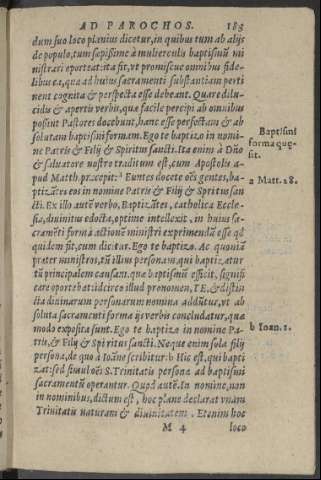 AD PAROCHOS. 183
dum suo loco plenius dicetur, in quibus tum ab alijs
de populo, tum sæpissime à mulierculis baptismũ mi
nistrari oporteat: ita fit, vt promiscue omnibus fide-
libus ea, quæ ad huius sacramenti substantiam perti
nent cognita & perspecta esse debeant. Quare dilu-
cidis & apertis verbis, quæ facile percipi ab omnibus
possint Pastores docebunt, hanc esse perfectam & ab
solutam baptismi formam. Ego te baptizo in nomi-
ne Patris & Filij & Spiritus sancti. Ita enim à Dño
& saluatore nostro traditum est, cum Apostolis a-
pud Matth. præcepit: Euntes docete oẽs gentes, ba-
ptizãtes eos in nomine Patris & Filij & Spiritus san
cti. Ex illo autẽ verbo, Baptizãtes, catholica Eccle-
sia, diuinitus edocta, optime intellexit, in huius sa-
cramẽti forma actionũ ministri exprimendũ esse qd
quidem fit, cum dicitur. Ego te baptizo. Ac quoniã
præter ministros, tũ illius personam, qui baptizatur
tũ principalem causam, quæ baptismũ efficit, signifi
care oportebat: idcirco illud pronomen, TE, & distin
cta diuinarum personarum nomina addũtur, vt ab
soluta sacramenti forma ijs verbis concludatur, quæ
modo exposita sunt. Ego te baptizo in nomine Pa-
tris, & Filij & Spiritus sancti. Neque enim sola filij
persona, de quo à Ioãne scribitur: b Hic est, qui bapti
zat: sed simul oẽs S. Trinitatis personæ ad baptismi
sacramentũ operantur. Quod autẽ. In nomine, non
in nominibus, dictum est, hoc plane declarat vnam
Trinitatis naturam & diuinitatem. Etenim hoc
M 4 loco
Baptismi
forma quæ
sit.
a Matt. 28.
b Ioan. 1.